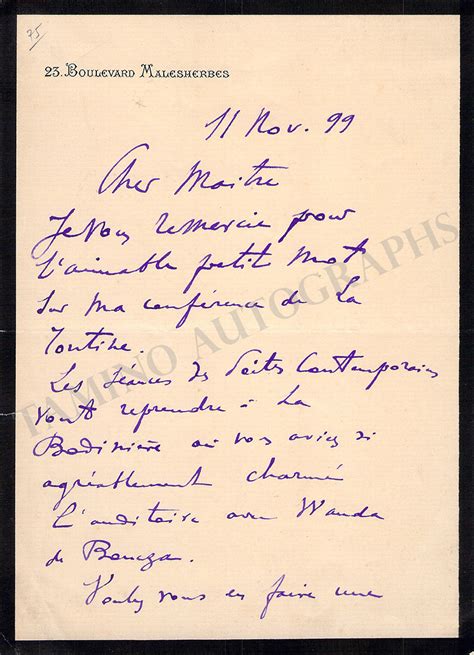 75
23. Boulevard Malesherbes
11 Nov. 99
Cher Maitre
Je vous remercie pour
l'aimable petit mot
sur ma conférence de La
Tontine.
Les séances des Poètes Contemporains
vont reprendre à La
Bodinière où vous aviez si
agréablement charmé
l'auditoire avec Wanda
de Boncza.
Voulez vous en faire une
TAMINO AUTOGRAPHS